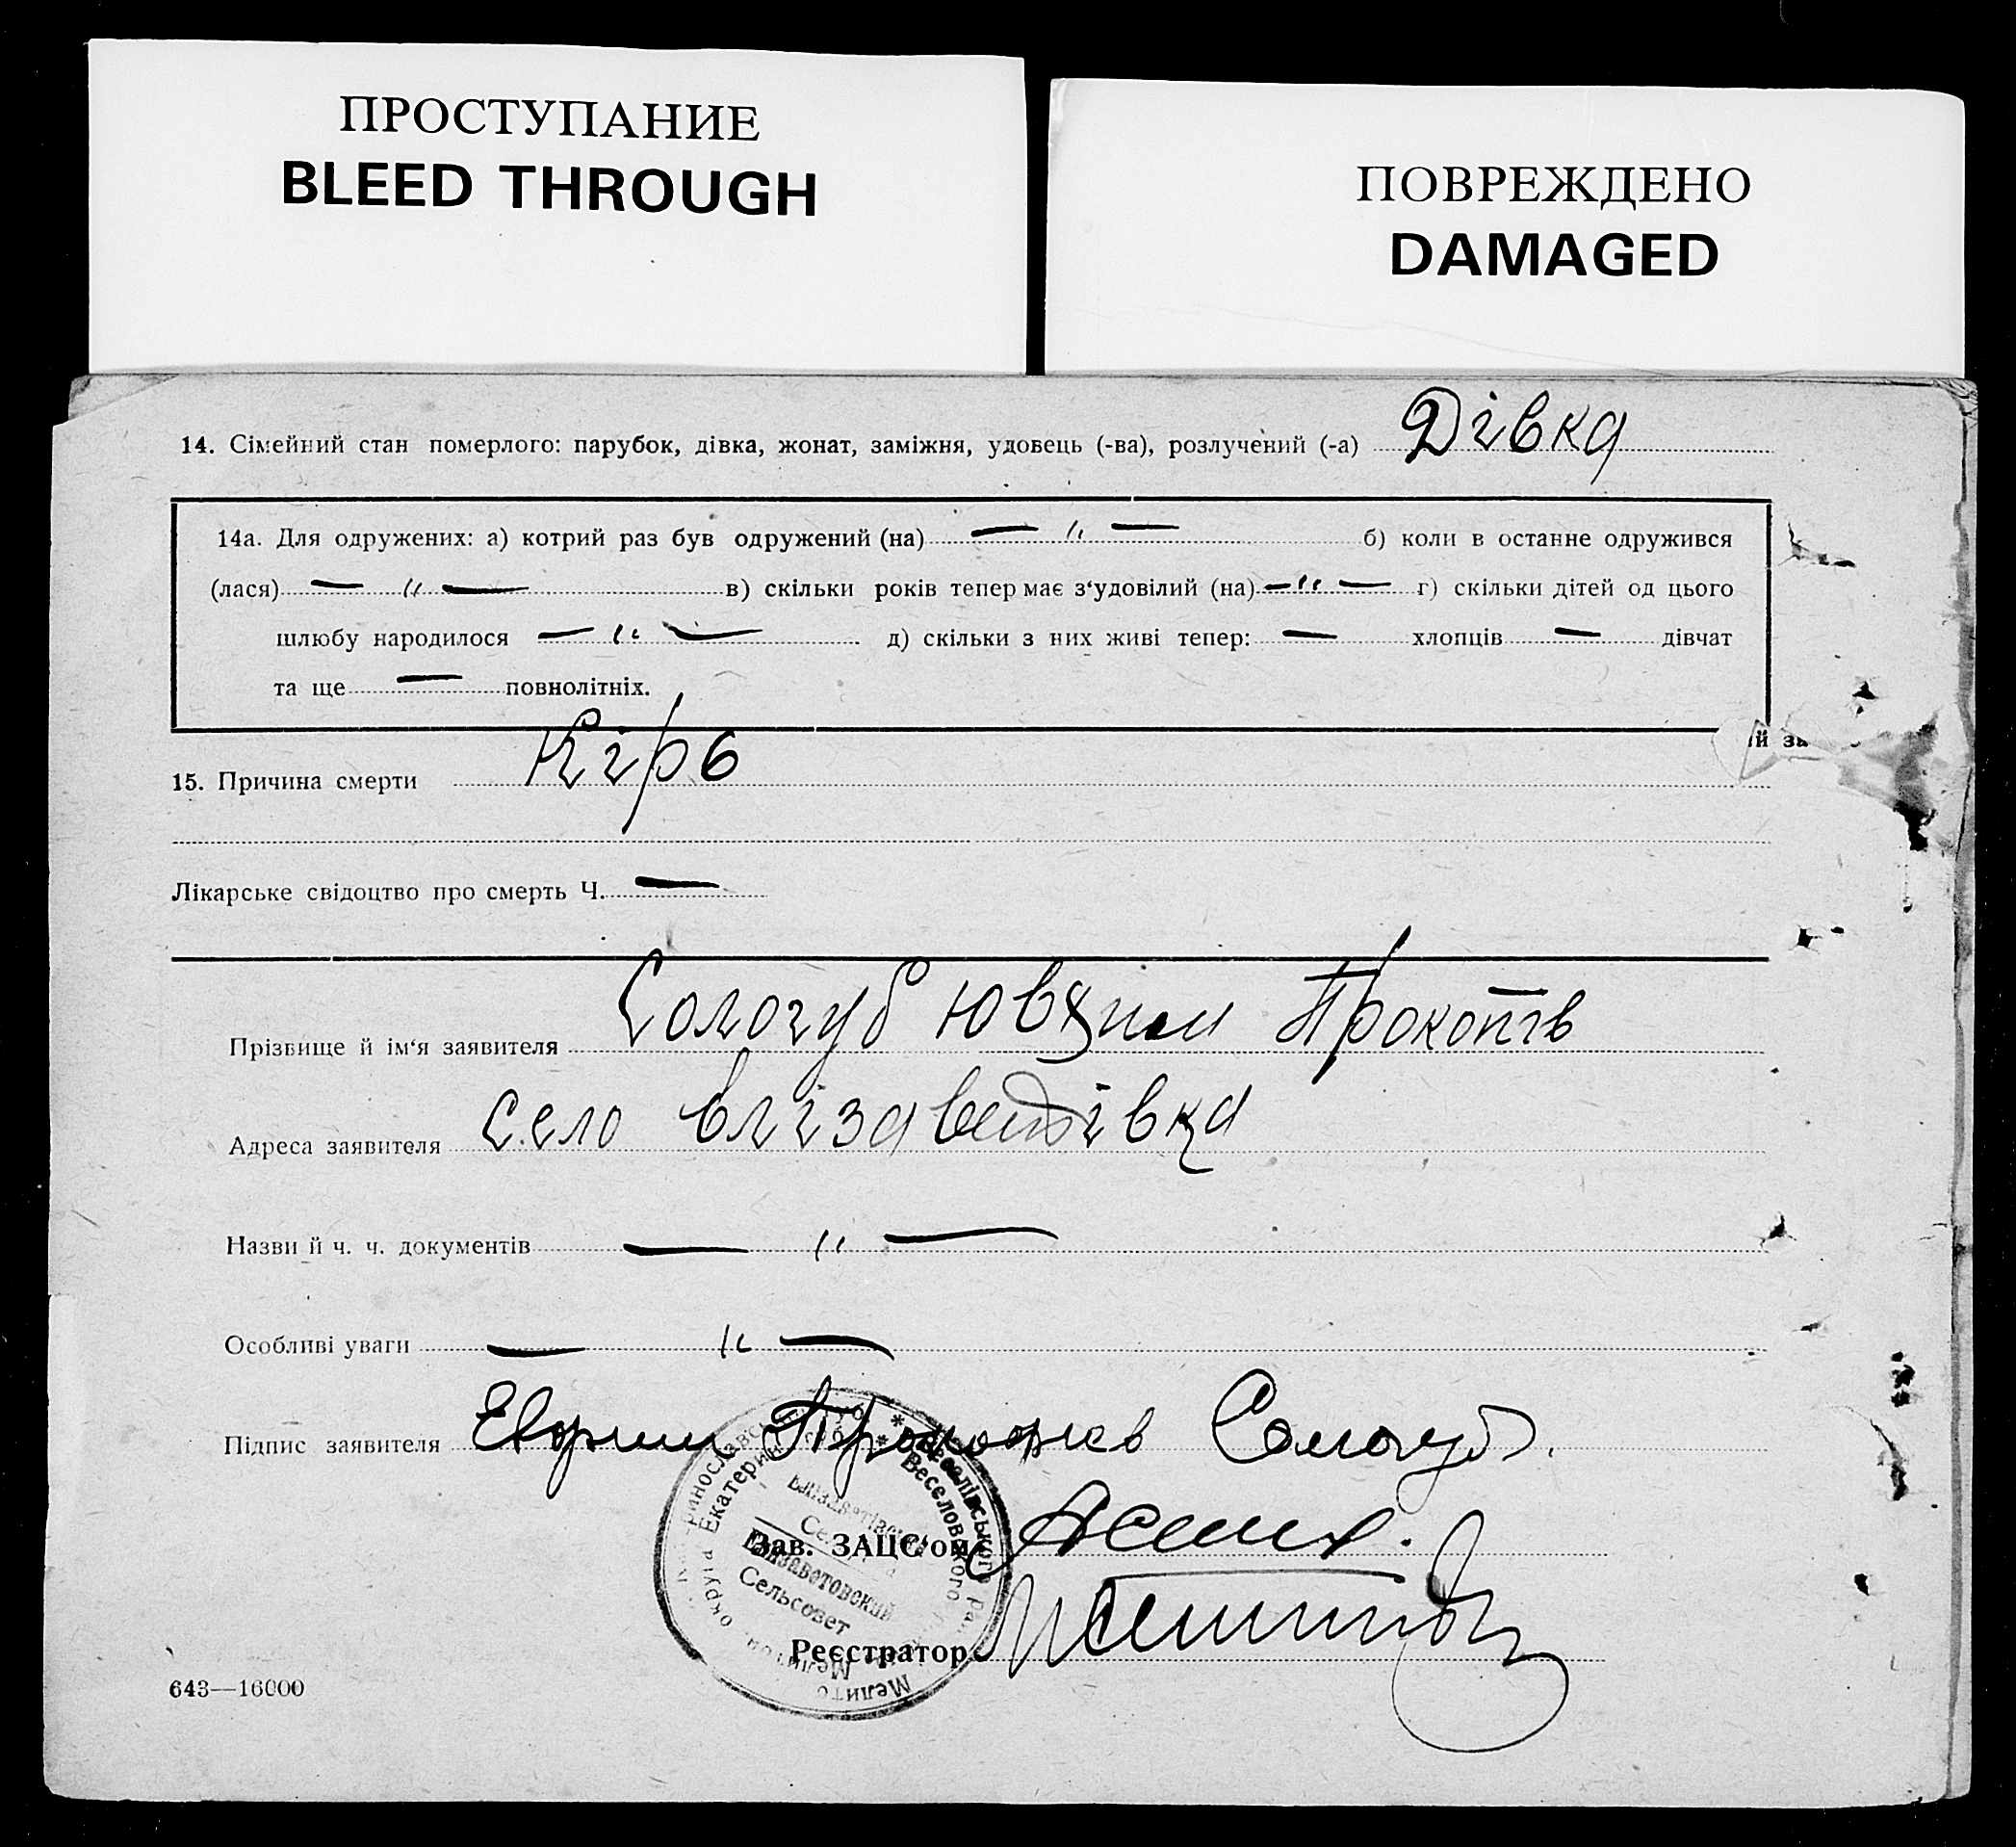 ПРОСТУПАНИЕ
BLEED THROUGH
ПОВРЕЖДЕНО
DAMAGED
14. Сімейний стан померлого: парубок, дівка, жонат, заміжня, удовець (-ва), розлучений (-а) Дівка
14а. Для одружених: а) котрий раз був одружений (на) — " — б) коли в останнє одружився
(лася) — " — в) скільки років тепер має з‘удовілий (на) — " — г) скільки дітей од цього
шлюбу народилося — " — д) скільки з них живі тепер: — хлопців — дівчат
та ще — повнолітніх.
й за
15. Причина смерти Кірь
Лікарське свідоцтво про смерть Ч. —
Прізвище й ім‘я заявителя Сологуб Прокопів
Адреса заявителя село Єлізаветівка
Назви й ч. ч. документів — " —
Особливі уваги — " —
Підпис заявителя Сологуб.
Зав. ЗАЦС‘ом
Реєстратор
Екатерин
Веселовского
округа
Мелитоп
Веселівського
Елизаветовский
Сельсовет
643—16000